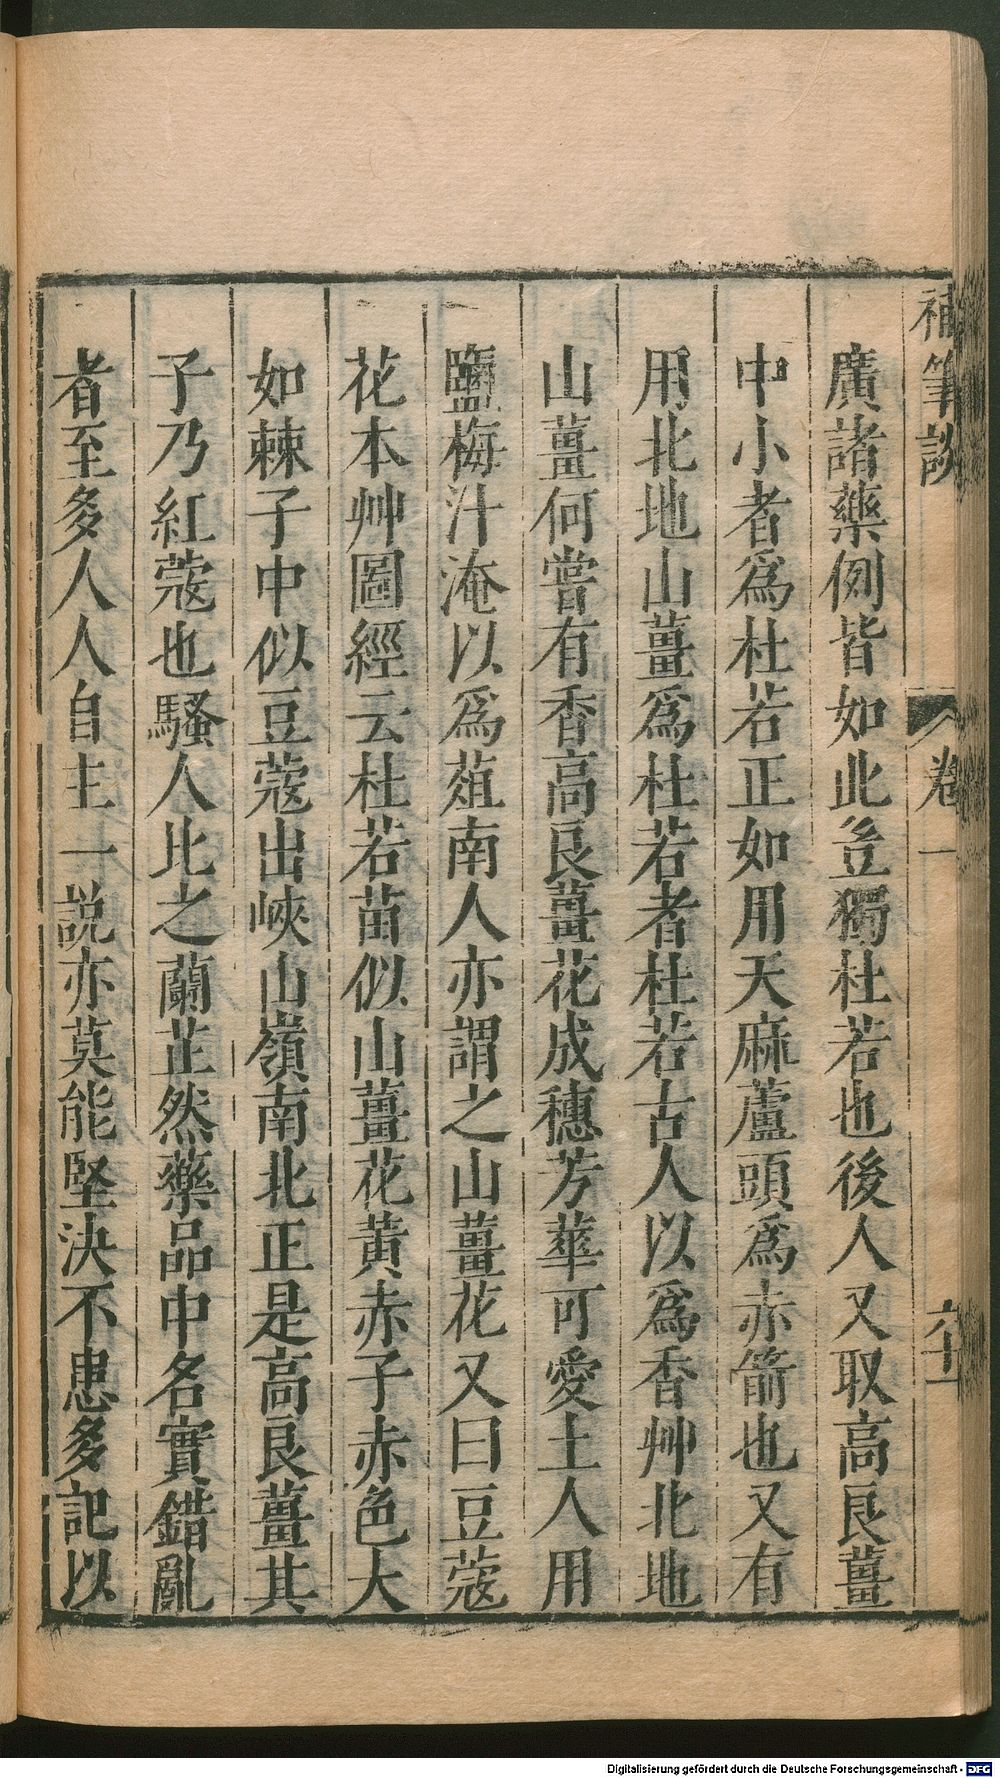 補筆談 卷一 六十一
廣諸藥例皆如此豈獨杜若也後人又取高良薑
中小者爲杜若正如用天麻蘆頭爲赤箭也又有
用北地山薑爲杜若者杜若古人以爲香艸北地
山薑何嘗有香高良薑花成穗芳華可愛土人用
鹽梅汁淹以爲葅南人亦謂之山薑花又曰豆蔻
花本艸圖經云杜若苗似山薑花黃赤子赤色大
如棘子中似豆蔻出峽山嶺南北正是高良薑其
子乃紅蔻也騷人比之蘭芷然藥品中名實錯亂
者至多人人自主一說亦莫能堅決不患多記以
Digitalisierung gefördert durch die Deutsche Forschungsgemeinschaft - DFG